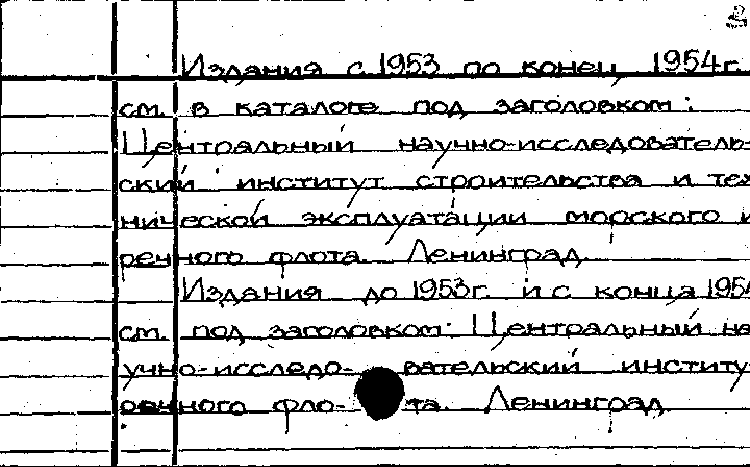 Издания с 1953 по конец 1954г.
см. в каталоге под заголовком:
Центральный научно-исследователь-
ский институт строительства и тех-
нической эксплуатации морского и
речного флота. Ленинград.
Издания до 1953г. и с конца 1954
см. под заголовком: Центральный на-
учно-исследо- вательский институ
речного фло- та. Ленинград.